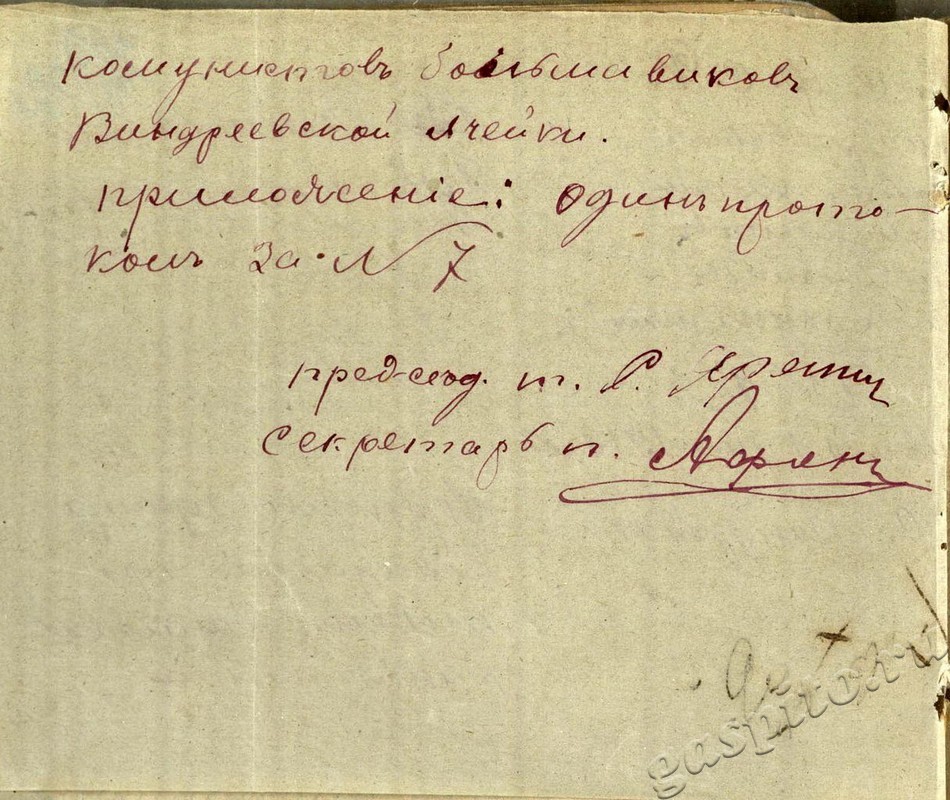 комунистовъ большавиковъ
Виндреевской ячейки.
приложеніе: одинъ прото-
колъ за № 7
председ. т. С.
секретарь т.
gaspito.ru